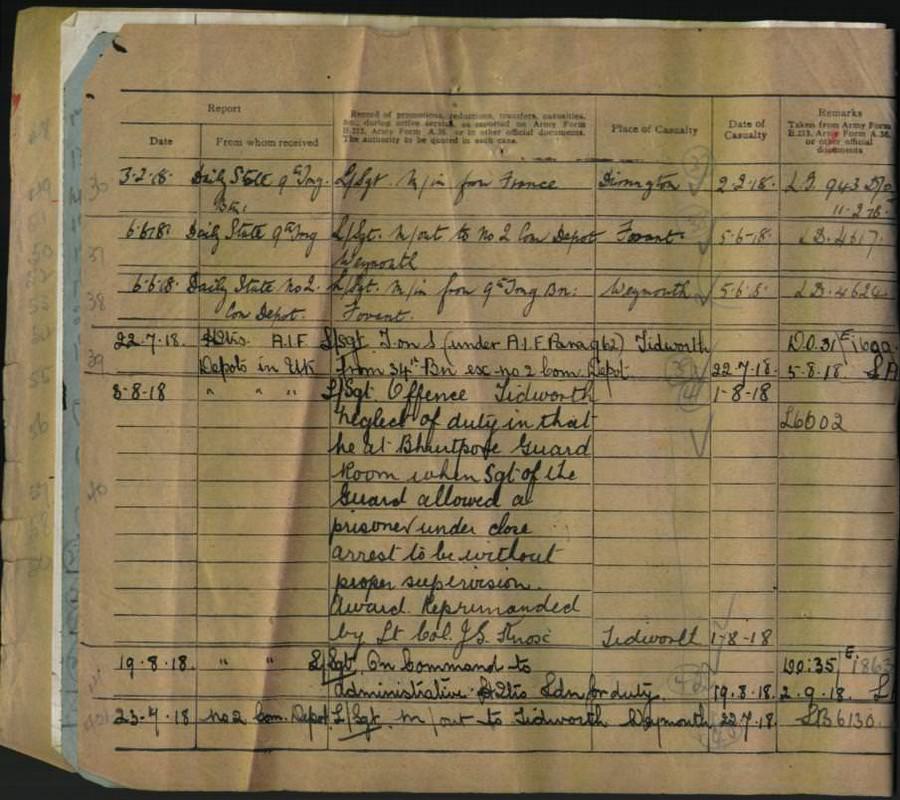 Report
Record of promotions, reductions, transfers, casualties, &c., during active service, as reported on Army Form B.213, Army Form A.36, or in other official documents. The authority to be quoted in each case.
Place of Casualty
Date of Casualty
Remarks
Taken from Army Form B.213, Army Form A.36, or other official documents
Date
From whom received
3.2.18. Daily State 9th Trng. L/Sgt. M/in from France 2.2.18.
Btn.
11.2.18.
6.6.18. Daily State 9th Trng L/Sgt. M/out to No 2 Con Depot Fovant. 5.6.18.
Weymouth
6.6.18. Daily State No 2. L/Sgt. M/in from 9th Trng Bn: Weymouth 5.6.18.
Con Depot. Fovant.
22.7.18. Hdqtrs. A.I.F L/Sgt T on S (under A.I.F Para 962) Tidworth D.O.31
Depots in U.K from 34th Bn ex no 2 Com Depot 22.7.18. 5.8.18
8-8-18 " " " L/Sgt Offence Tidworth 1-8-18
neglect of duty in that L6602
he at Bhurtpore Guard
Room when Sgt of the
Guard allowed a
prisoner under close
arrest to be without
proper supervision.
Award. Reprimanded
by Lt Col. J.G. Tidworth 1-8-18
19.8.18. " " L/Sgt. On Command to D.O:35
administrative Hdqtrs Ldn for duty. 19.8.18. 2.9.18.
23.7.18 No 2 Com. Depot L/Sgt. m/out to Tidworth Weymouth 22.7.18. LB6130.